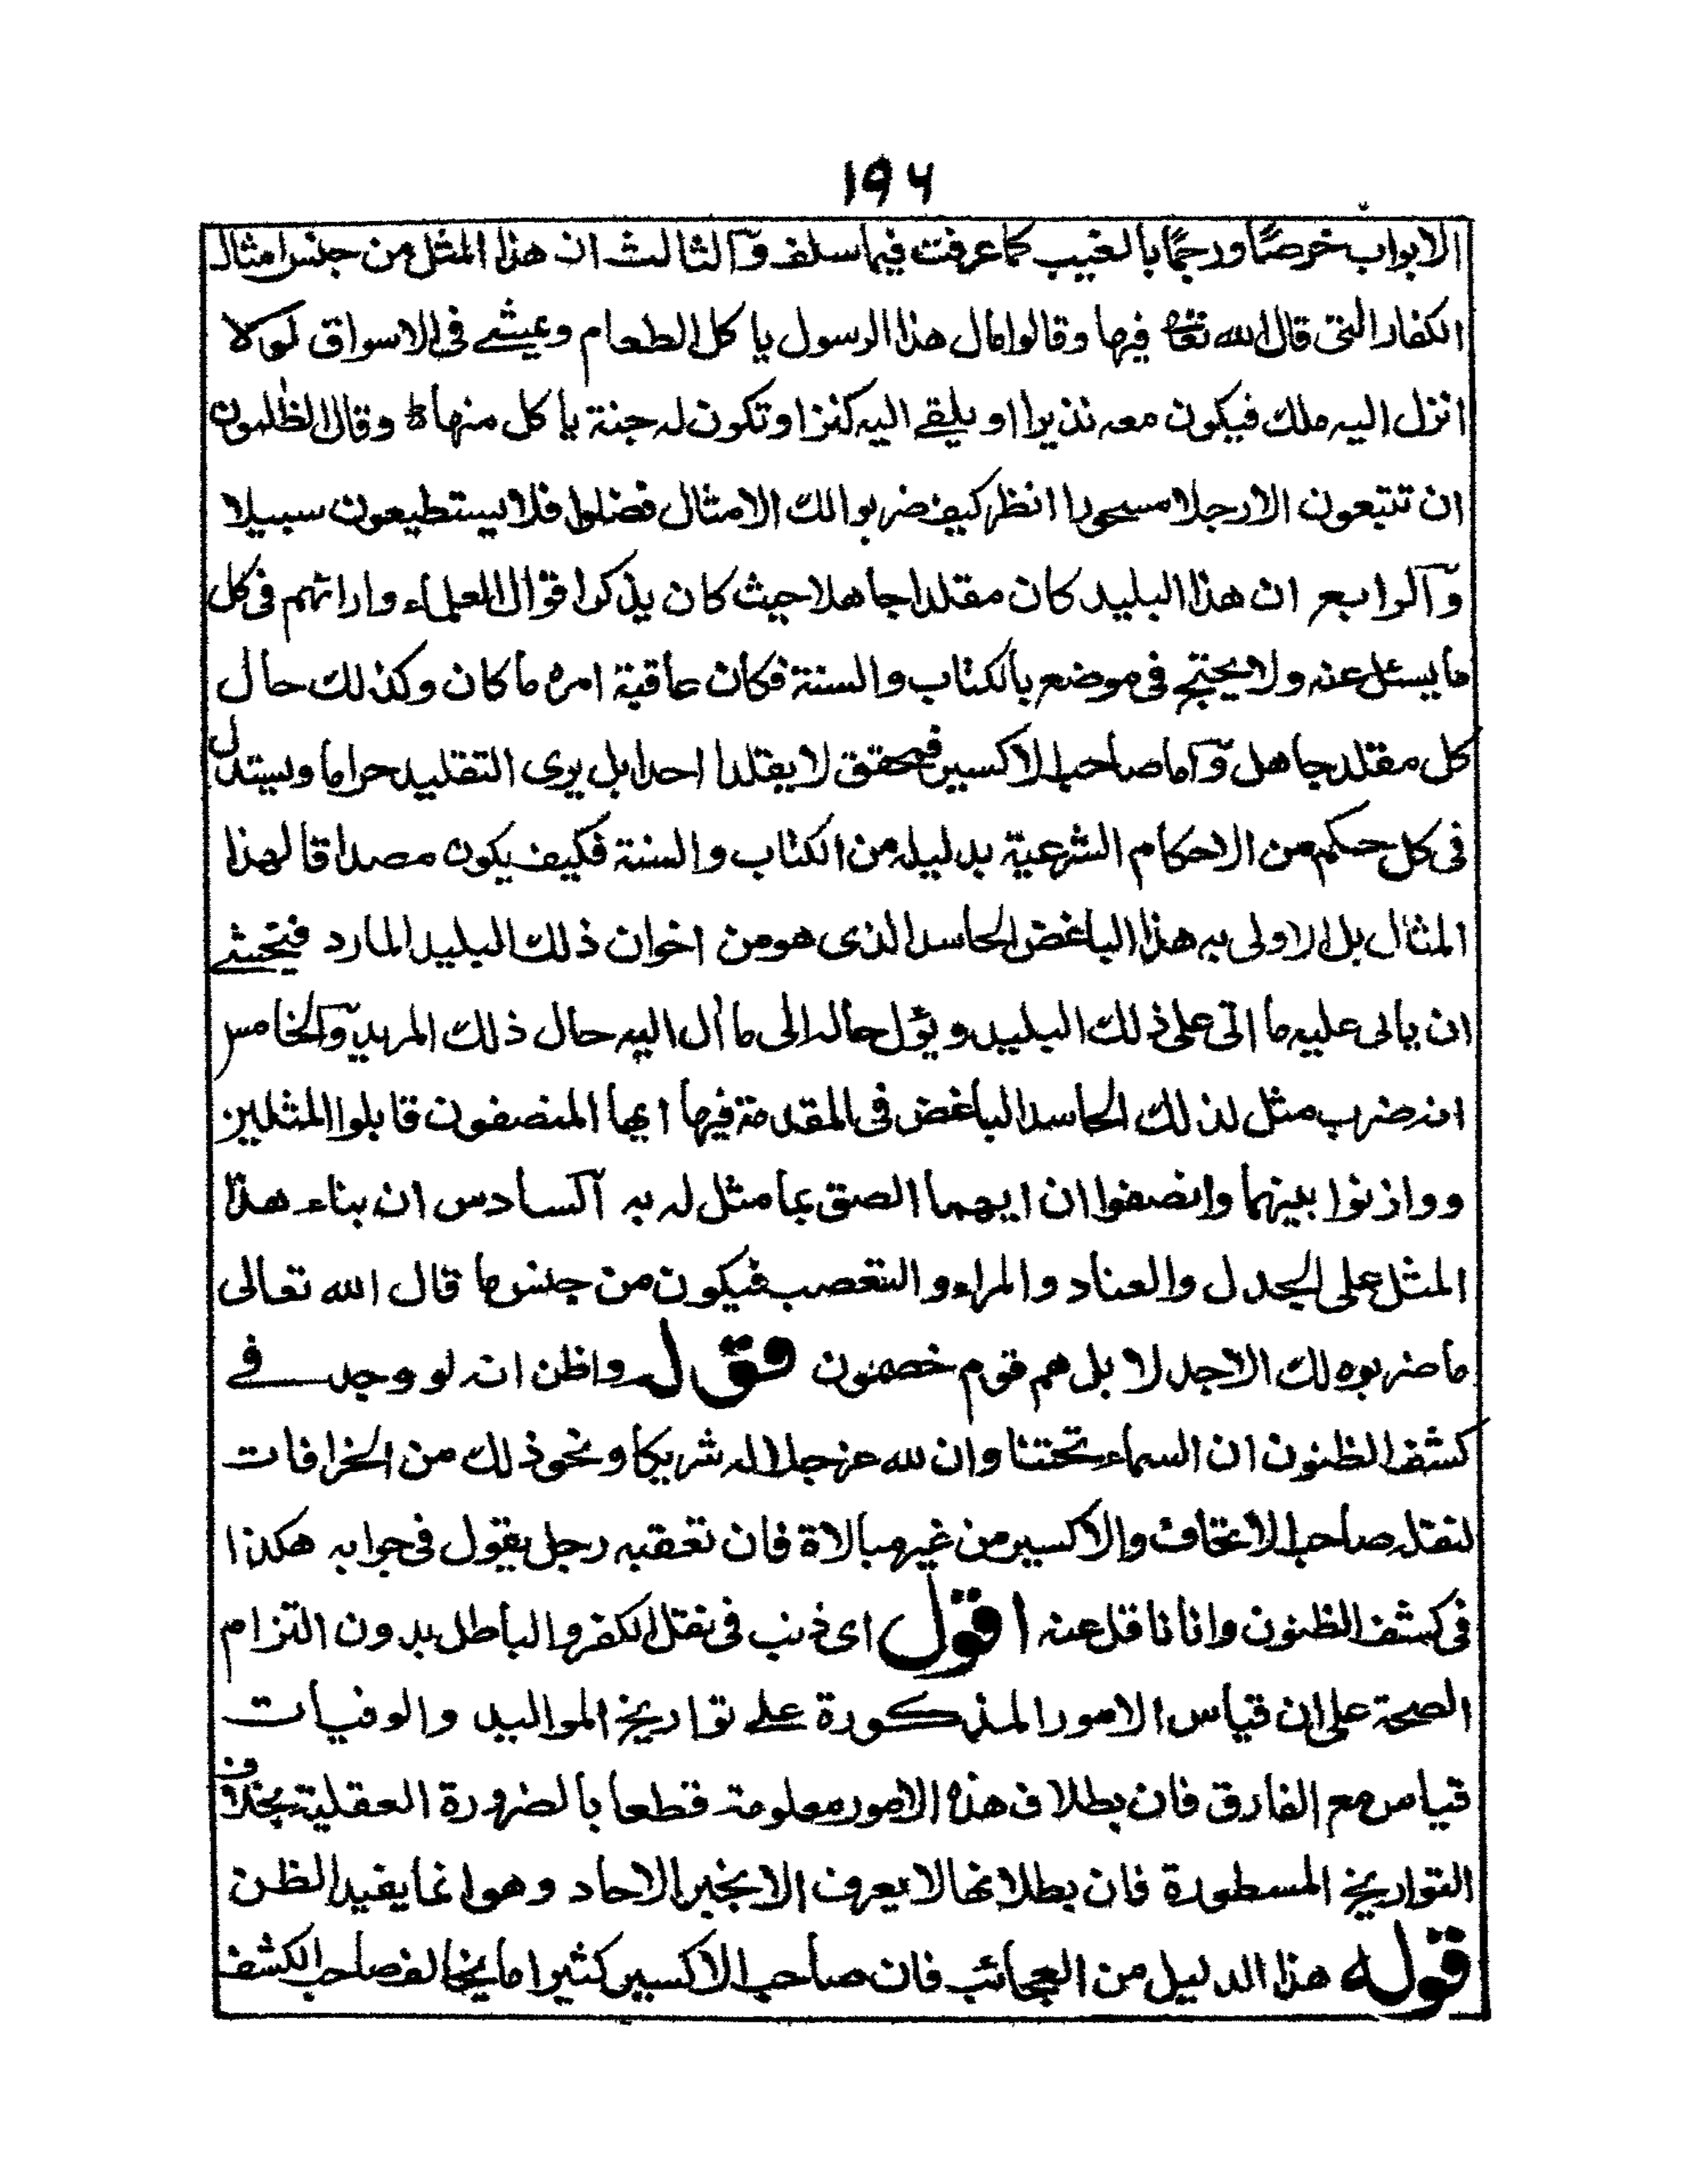 ۱۹۶
الابواب خرصًا ورجمًا بالغيب كما عرفت فيما سلف وآلثالث ان هذا المثل من جنس امثال
الكفار التي قال الله تعالى فيها وقالوا مال هذا الرسول ياكل الطعام ويمشے فى الاسواق لولا
انزل اليه ملك فيكون معه نذيرا او يلقے اليه كنز او تكون له جنة ياكل منها ط وقال الظٰلمون
ان تتبعون الا رجلا مسحورا انظر كيف ضربوا لك الامثال فضلوا فلا يستطيعون سبيلا
وآلرابع ان هذا البليد كان مقلدا جاهلا حيث كان يذكر اقوال العلماء واراتهم فى كل
ما يسئل عنه ولا يحتج فى موضع بالكتاب والسنة فكان عاقبة امره ما كان وكذلك حال
كل مقلد جاهل وآما صاحب الاكسير فمحقق لا يقلد احدا بل يرى التقليد حراما ويستدل
فى كل حكم من الاحكام الشرعية بدليله من الكتاب والسنة فكيف يكون مصداقا لهذا
المثال بل الاولى به هذا الباغض الحاسد الذى هو من اخوان ذلك البليد المارد فيخشے
ان ياتى عليه ما اتى على ذلك البليد ويؤل حاله الى ما آل اليه حال ذلك المريد وآلخامس
انه ضرب مثل لذلك الحاسد الباغض فى المقدمة فيها ايها المنصفون قابلوا المثلين
ووازنوا بينهما وانصفوا ان ايهما الصق بما مثل له به آلسادس ان بناء هذا
المثل على الجدل والعناد والمراء والتعصب فيكون من جنس ما قال الله تعالى
ما ضربوه لك الا جدلا بل هم قوم خصمون قوله واظن انه لو وجد فے
كشف الظنون ان السماء تحتنا وان لله عز جلاله شريكا ونحو ذلك من الخرافات
لنقله صاحب الاتحاف والاكسير من غير مبالاة فان تعقبه رجل يقول فى جوابه هكذا
فى كشف الظنون وانا ناقل عنه اقول اى ذنب فى نقل الكفر والباطل بدون التزام
الصحة على ان قياس الامور المذكورة علے تواريخ المواليد والوفيات
قياس مع الفارق فان بطلان هذه الامور معلومة قطعا بالضرورة العقلية بخلاف
التواريخ المسطورة فان بطلانها لا يعرف الا بخبر الاحاد وهو انما يفيد الظن
قوله هذا الدليل من العجائب فان صاحب الاكسير كثيرا ما يخالف صاحب الكشف